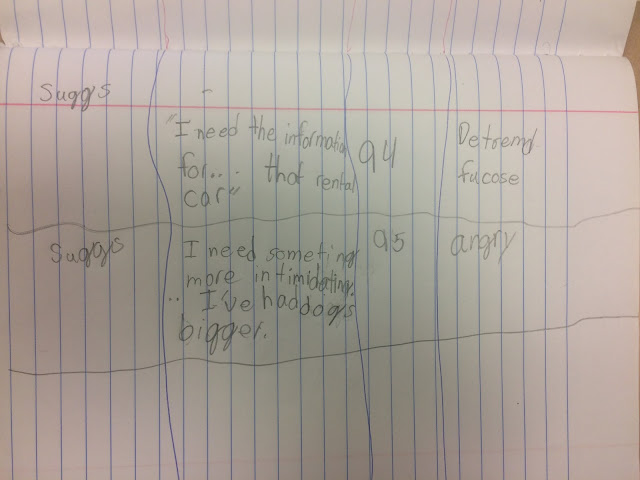 Suggs
"I need the informatio
for... that rental
car"
94
Detremd
fucose
Suggs
I need someting
more intimidating.
.. I've had dogs
bigger.
95
angry